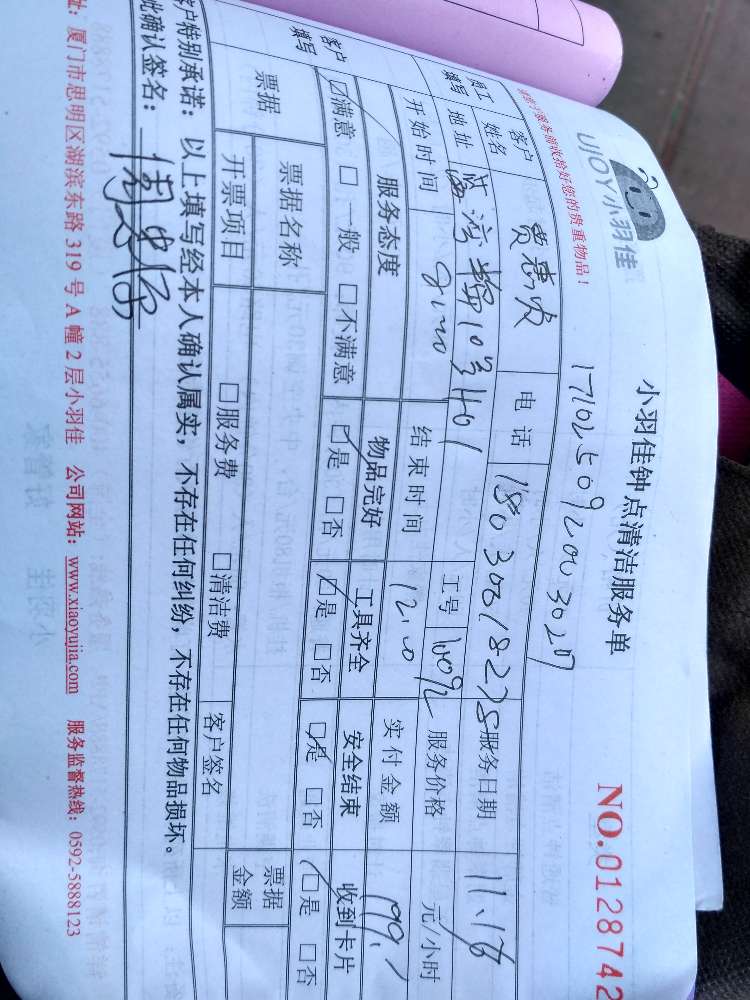 UJOY小羽佳
小羽佳钟点清洁服务单
NO.0128742
17102509200 3027
请客户服务前收拾好您的贵重物品！
员工填写
客户姓名
电话
服务日期 11.18
地址
工号
服务价格 元/小时
开始时间 8:00
结束时间 12:00
实付金额 199.
客户填写
服务态度 物品完好 工具齐全 安全结束 收到卡片
☑满意 □一般 □不满意 ☑是 □否 ☑是 □否 ☑是 □否 ☑是 □否
票据
票据名称
票据金额
开票项目 □服务费 □清洁费 客户签名
客户特别承诺：以上填写经本人确认属实，不存在任何纠纷，不存在任何物品损坏。
此确认签名：
址：厦门市思明区湖滨东路 319 号 A 幢 2 层小羽佳 公司网站：www.xiaoyujia.com 服务监督热线：0592-5888123